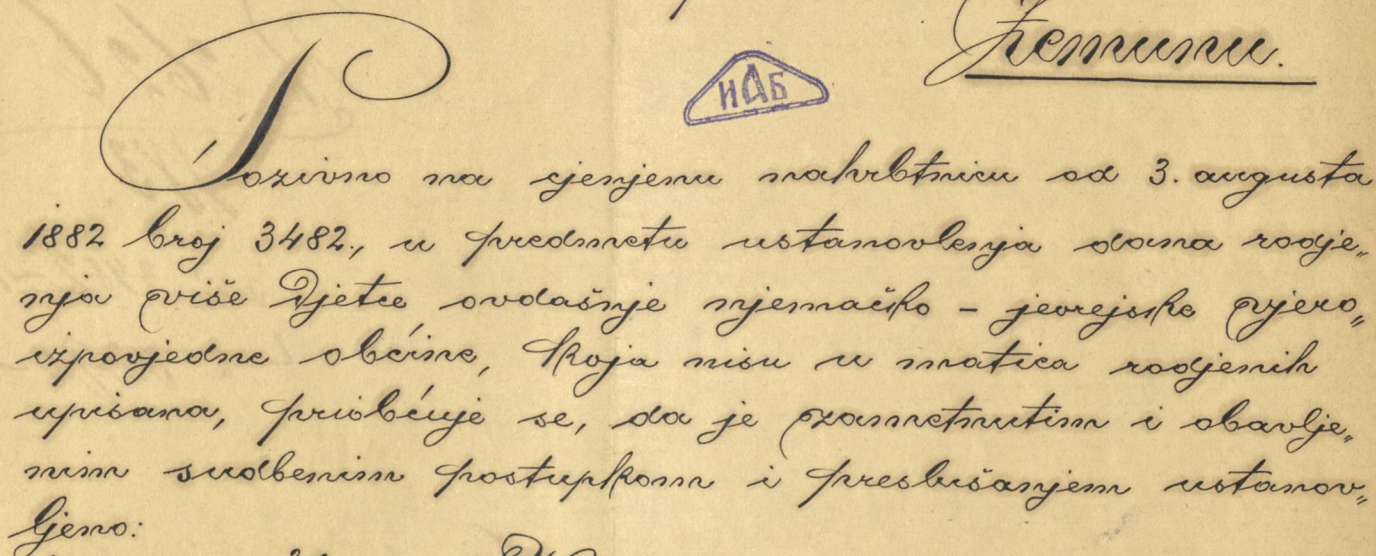 Zemunu.
ИАБ
Pozivno na cjenjenu nahrbtnicu od 3. augusta
1882 broj 3482., u predmetu ustanovlenja dana rodje„
nja više Djetce ovdašnje njemačko - jevrejske vjero„
izpovjedne občine, koja nisu u matica rodjenih
upisana, priobćuje se, da je zametnutim i obavlje„
nim sudbenim postupkom i preslušanjem ustanov„
ljeno: